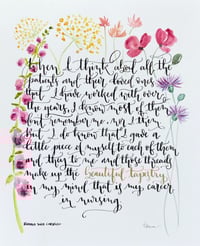 When I think about all the
patients and their loved ones
that I have worked with over
the years, I know most of them
don't remember me, nor I them
But I do know that I gave a
little piece of myself to each of them
and they to me and those threads
make up the beautiful tapestry
in my mind that is my career
in nursing.